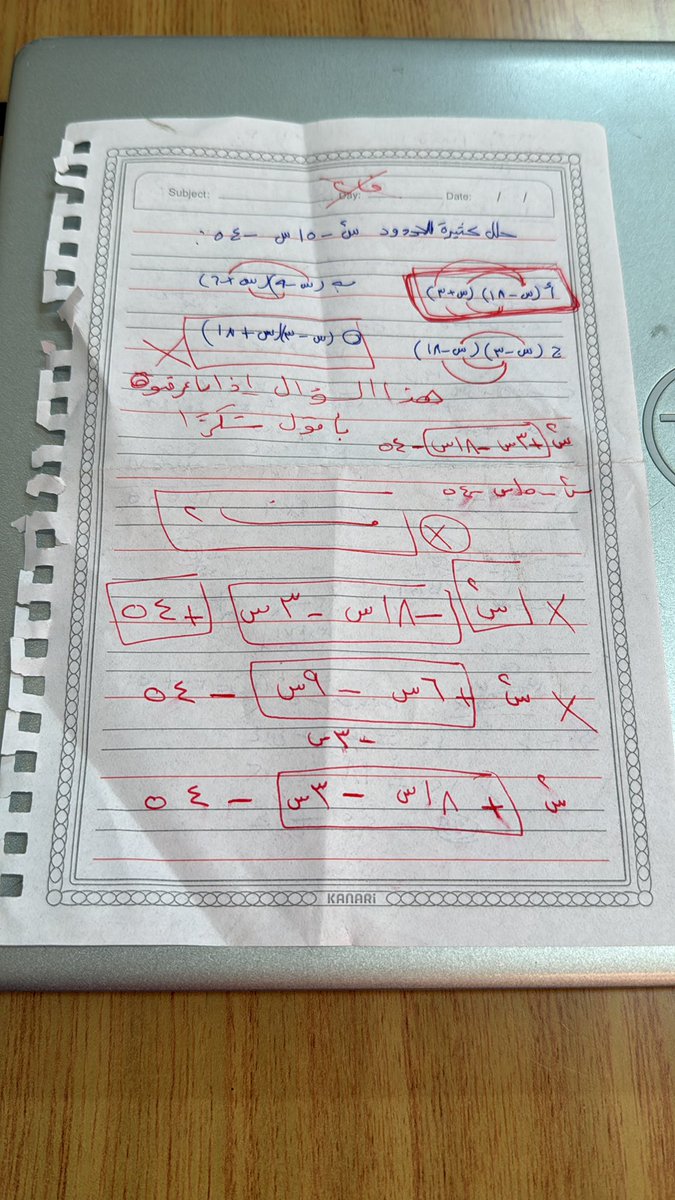 Subject: Day: Date: / /
حلل كثيرة الحدود س² - ١٥س - ٥٤ :
أ (س - ١٨) (س + ٣) ب (س - ٩)(س + ٦)
ج (س - ٣) (س - ١٨) د (س - ٣)(س + ١٨)
هذا السؤال إذا ما عرفتوه
شكرًا
س² + ٣س - ١٨س - ٥٤
س² - ١٥س - ٥٤
س² - ١٨س - ٣س + ٥٤
س² + ٦س - ٩س - ٥٤
- ٣س
س² + ١٨س - ٣س - ٥٤
KANARI